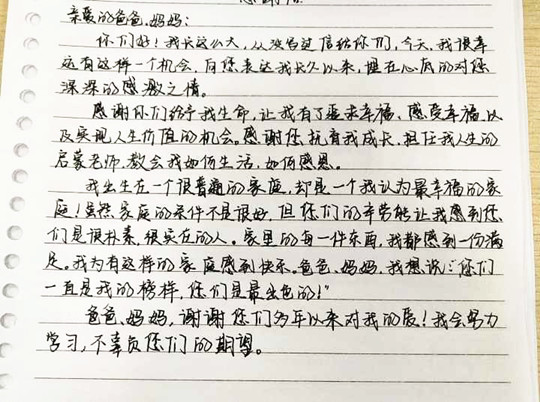 感谢信
亲爱的爸爸、妈妈:
你们好!我长这么大,从没写过信给你们,今天,我很幸
运有这样一个机会,向您表达我长久以来,埋在心底的对您
深深的感激之情。
感谢你们给予我生命,让我有了追求幸福、感受幸福以
及实现人生价值的机会。感谢您抚育我成长,担任我人生的
启蒙老师,教会我如何生活,如何感恩。
我出生在一个很普通的家庭,却是一个我认为最幸福的家
庭!虽然家庭的条件不是很好,但你们的辛劳能让我感到您
们是很朴素,很实在的人。家里的每一件东西,我都感到一份满
足。我为有这样的家庭感到快乐。爸爸、妈妈,我想说:“您们
一直是我的榜样,您们是最出色的!”
爸爸、妈妈,谢谢您们多年以来对我的爱!我会努力
学习,不辜负您们的期望。